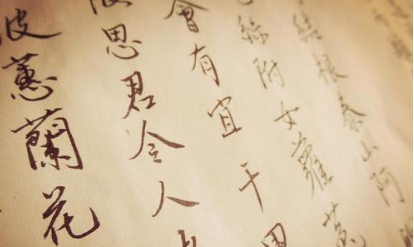 結根泰山阿
絲附女蘿
會有宜千里
陂思君令人
彼蕙蘭花